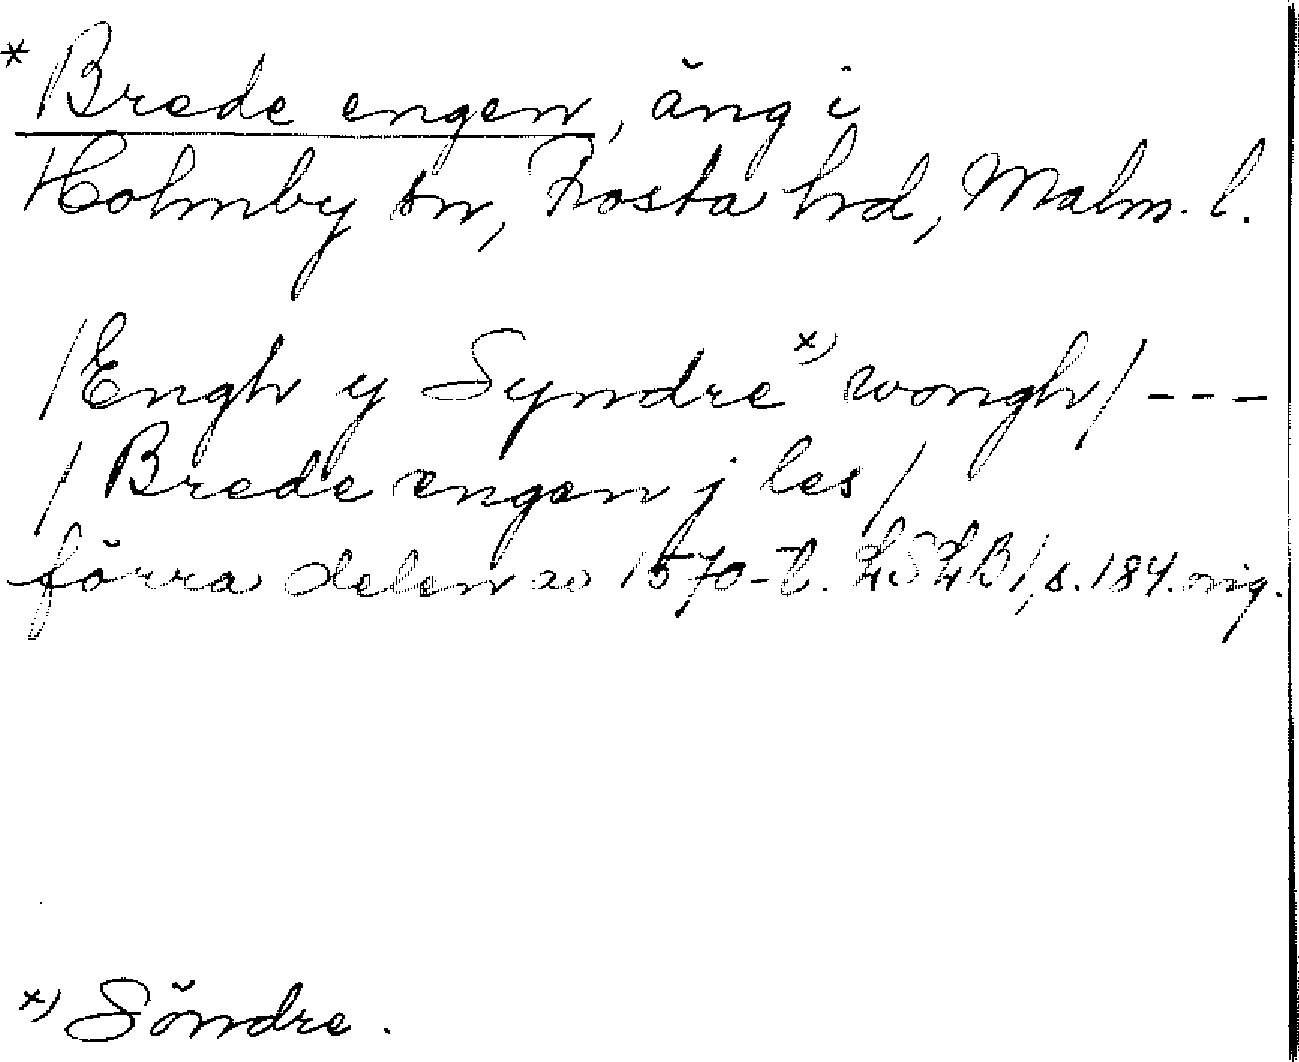 * Brede engen, äng i
Holmby sn, Frosta hrd, Malm. l.
/Engh y Syndre x) wongh/ ---
/ Brede engen j les /
förra delen av 1570-t. LSLB 1, s. 184. orig.
x) Söndre.